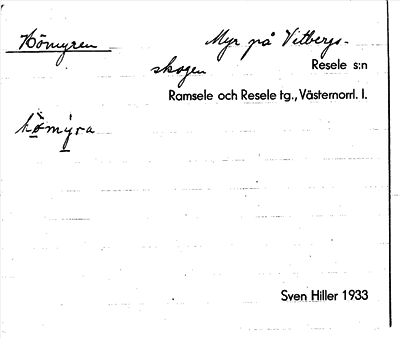 Hömyren
Myr på Vitbergs-
skogen
Resele s:n
Ramsele och Resele tg., Västernorrl. l.
hö̀mýra
Sven Hiller 1933